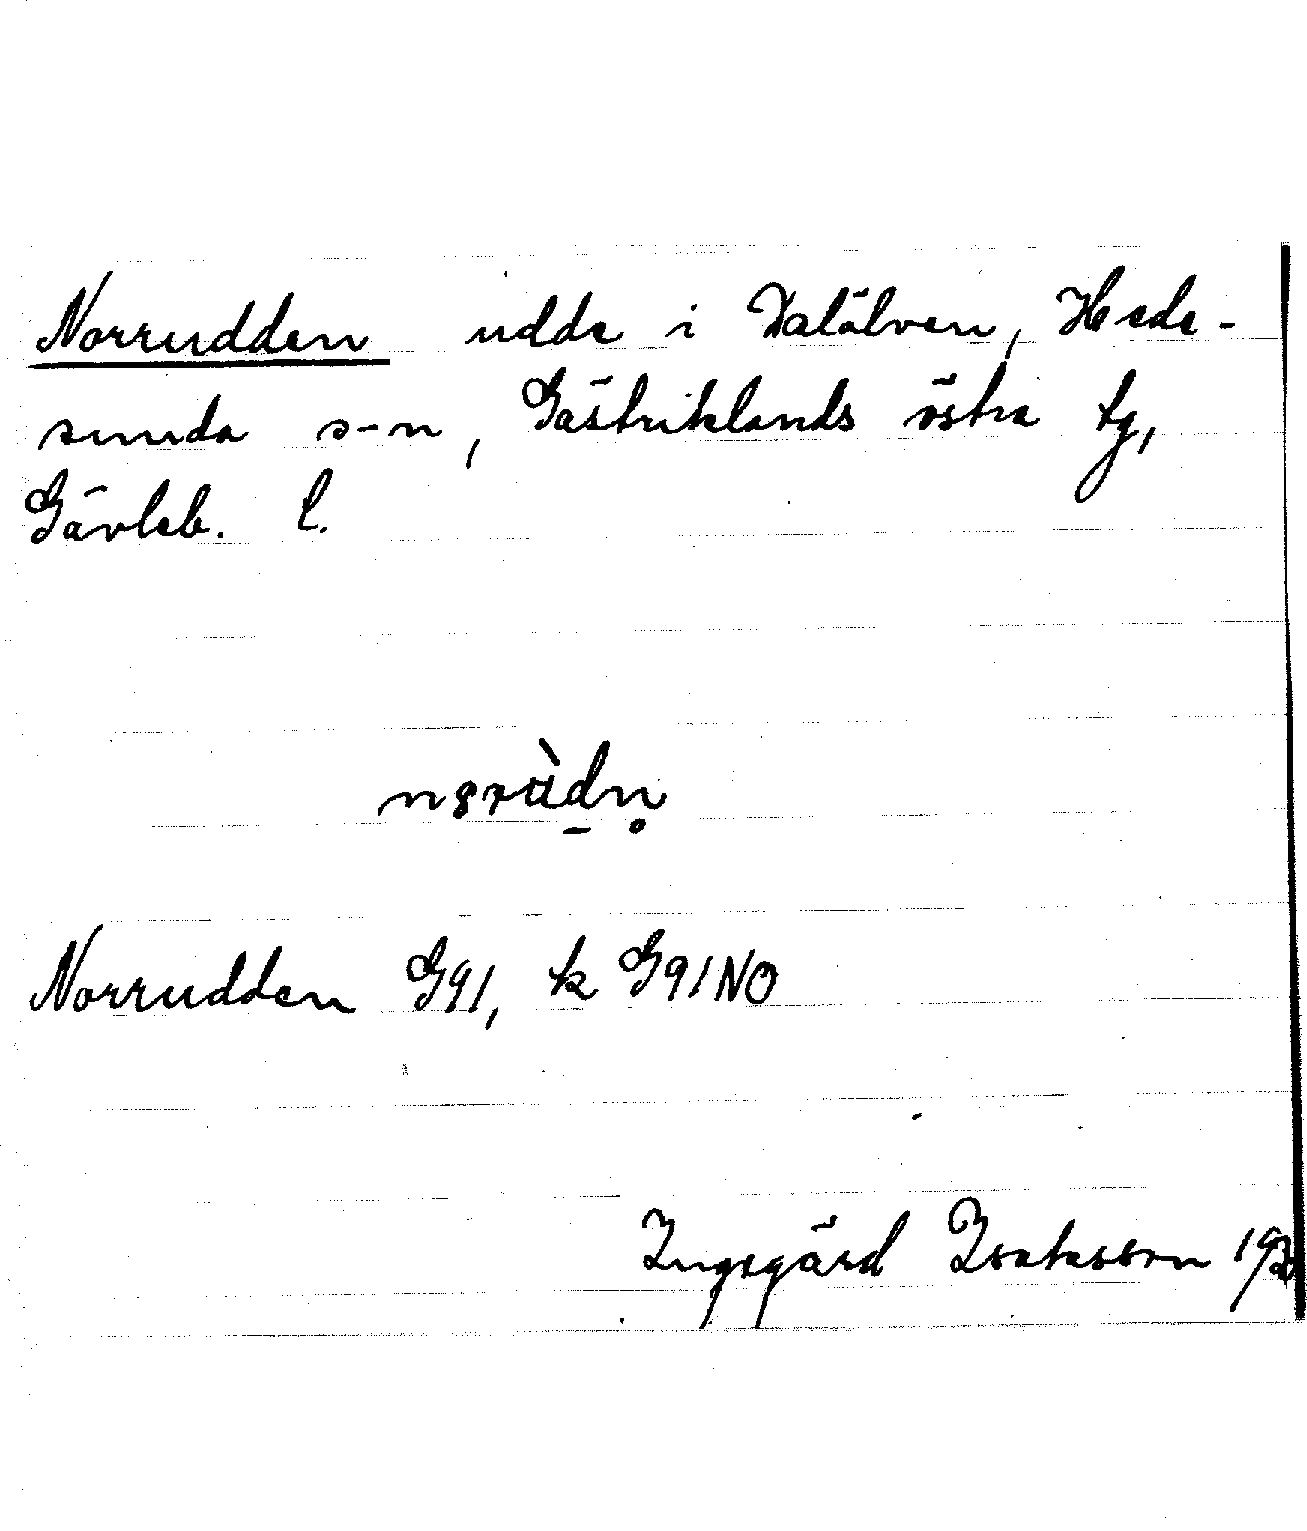 Norrudden udde i Dalälven, Hede-
sunda s-n, Gästriklands östra tg,
Gävleb. l.
Norrudden G91, k G91NO
Ingegärd Isaksson